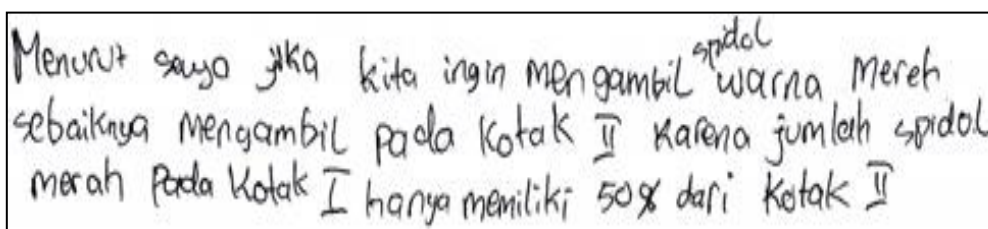 Menurut saya jika kita ingin mengambil spidol warna merah
sebaiknya mengambil pada kotak II karena jumlah spidol
merah pada kotak I hanya memiliki 50% dari kotak II